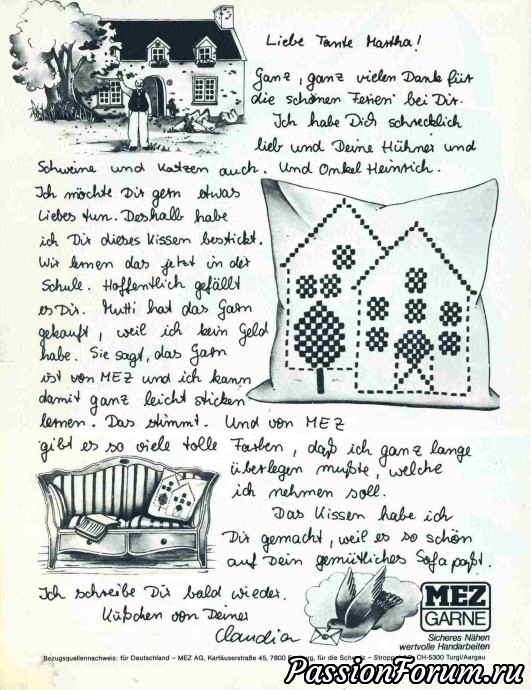 Liebe Tante Martha!
Ganz, ganz vielen Dank für
die schönen Ferien bei Dir.
Ich habe Dich schrecklich
lieb und Deine Hühner und
Schweine und Katzen auch. Und Onkel Heinrich.
Ich möchte Dir gern etwas
Liebes tun. Deshalb habe
ich Dir dieses Kissen bestickt.
Wir lernen das jetzt in der
Schule. Hoffentlich gefällt
es Dir. Mutti hat das Garn
gekauft, weil ich kein Geld
habe. Sie sagt, das Garn
ist von MEZ und ich kann
damit ganz leicht sticken
lernen. Das stimmt. Und von MEZ
gibt es so viele tolle Farben, daß ich ganz lange
überlegen mußte, welche
ich nehmen soll.
Das Kissen habe ich
Dir gemacht, weil es so schön
auf Dein gemütliches Sofa paßt.
Ich schreibe Dir bald wieder.
Küßchen von Deiner
Claudia
MEZ
GARNE
Sicheres Nähen
wertvolle Handarbeiten
Bezugsquellennachweis: für Deutschland – MEZ AG, Kartäuserstraße 45, 7800 für die CH-5300 Turgi/Aargau
PassionForum.ru